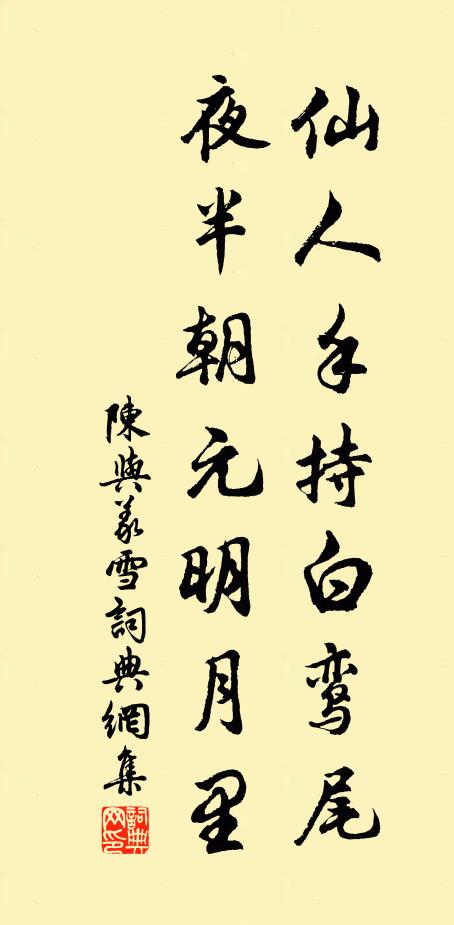 仙人手持白鸾尾
夜半朝元明月里
陳與義雪詞典網集
詞典网印